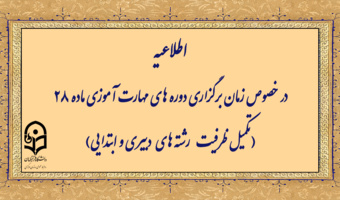 اطلاعیه
در خصوص زمان برگزاری دوره های مهارت آموزی ماده ۲۸
(تکمیل ظرفیت رشته های دبیری و ابتدایی)